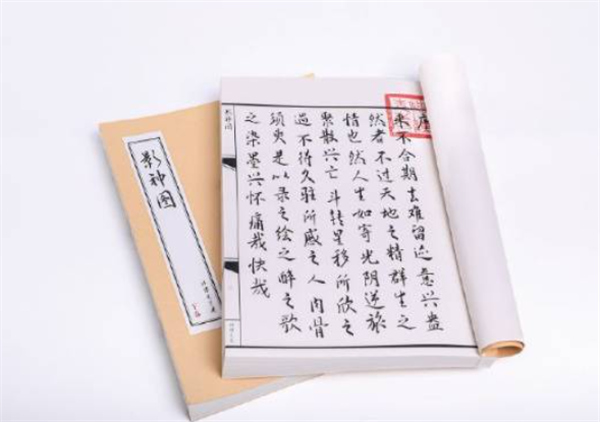 影神图
影神图
来不合期去难留迹意兴盎
然者不过天地之精群生之
情也然人生如寄光阴逆旅
聚散兴亡斗转星移所欣之
遇不待久驻所感之人内骨
须臾是以录之绘之醉之歌
之染墨兴怀痛哉快哉